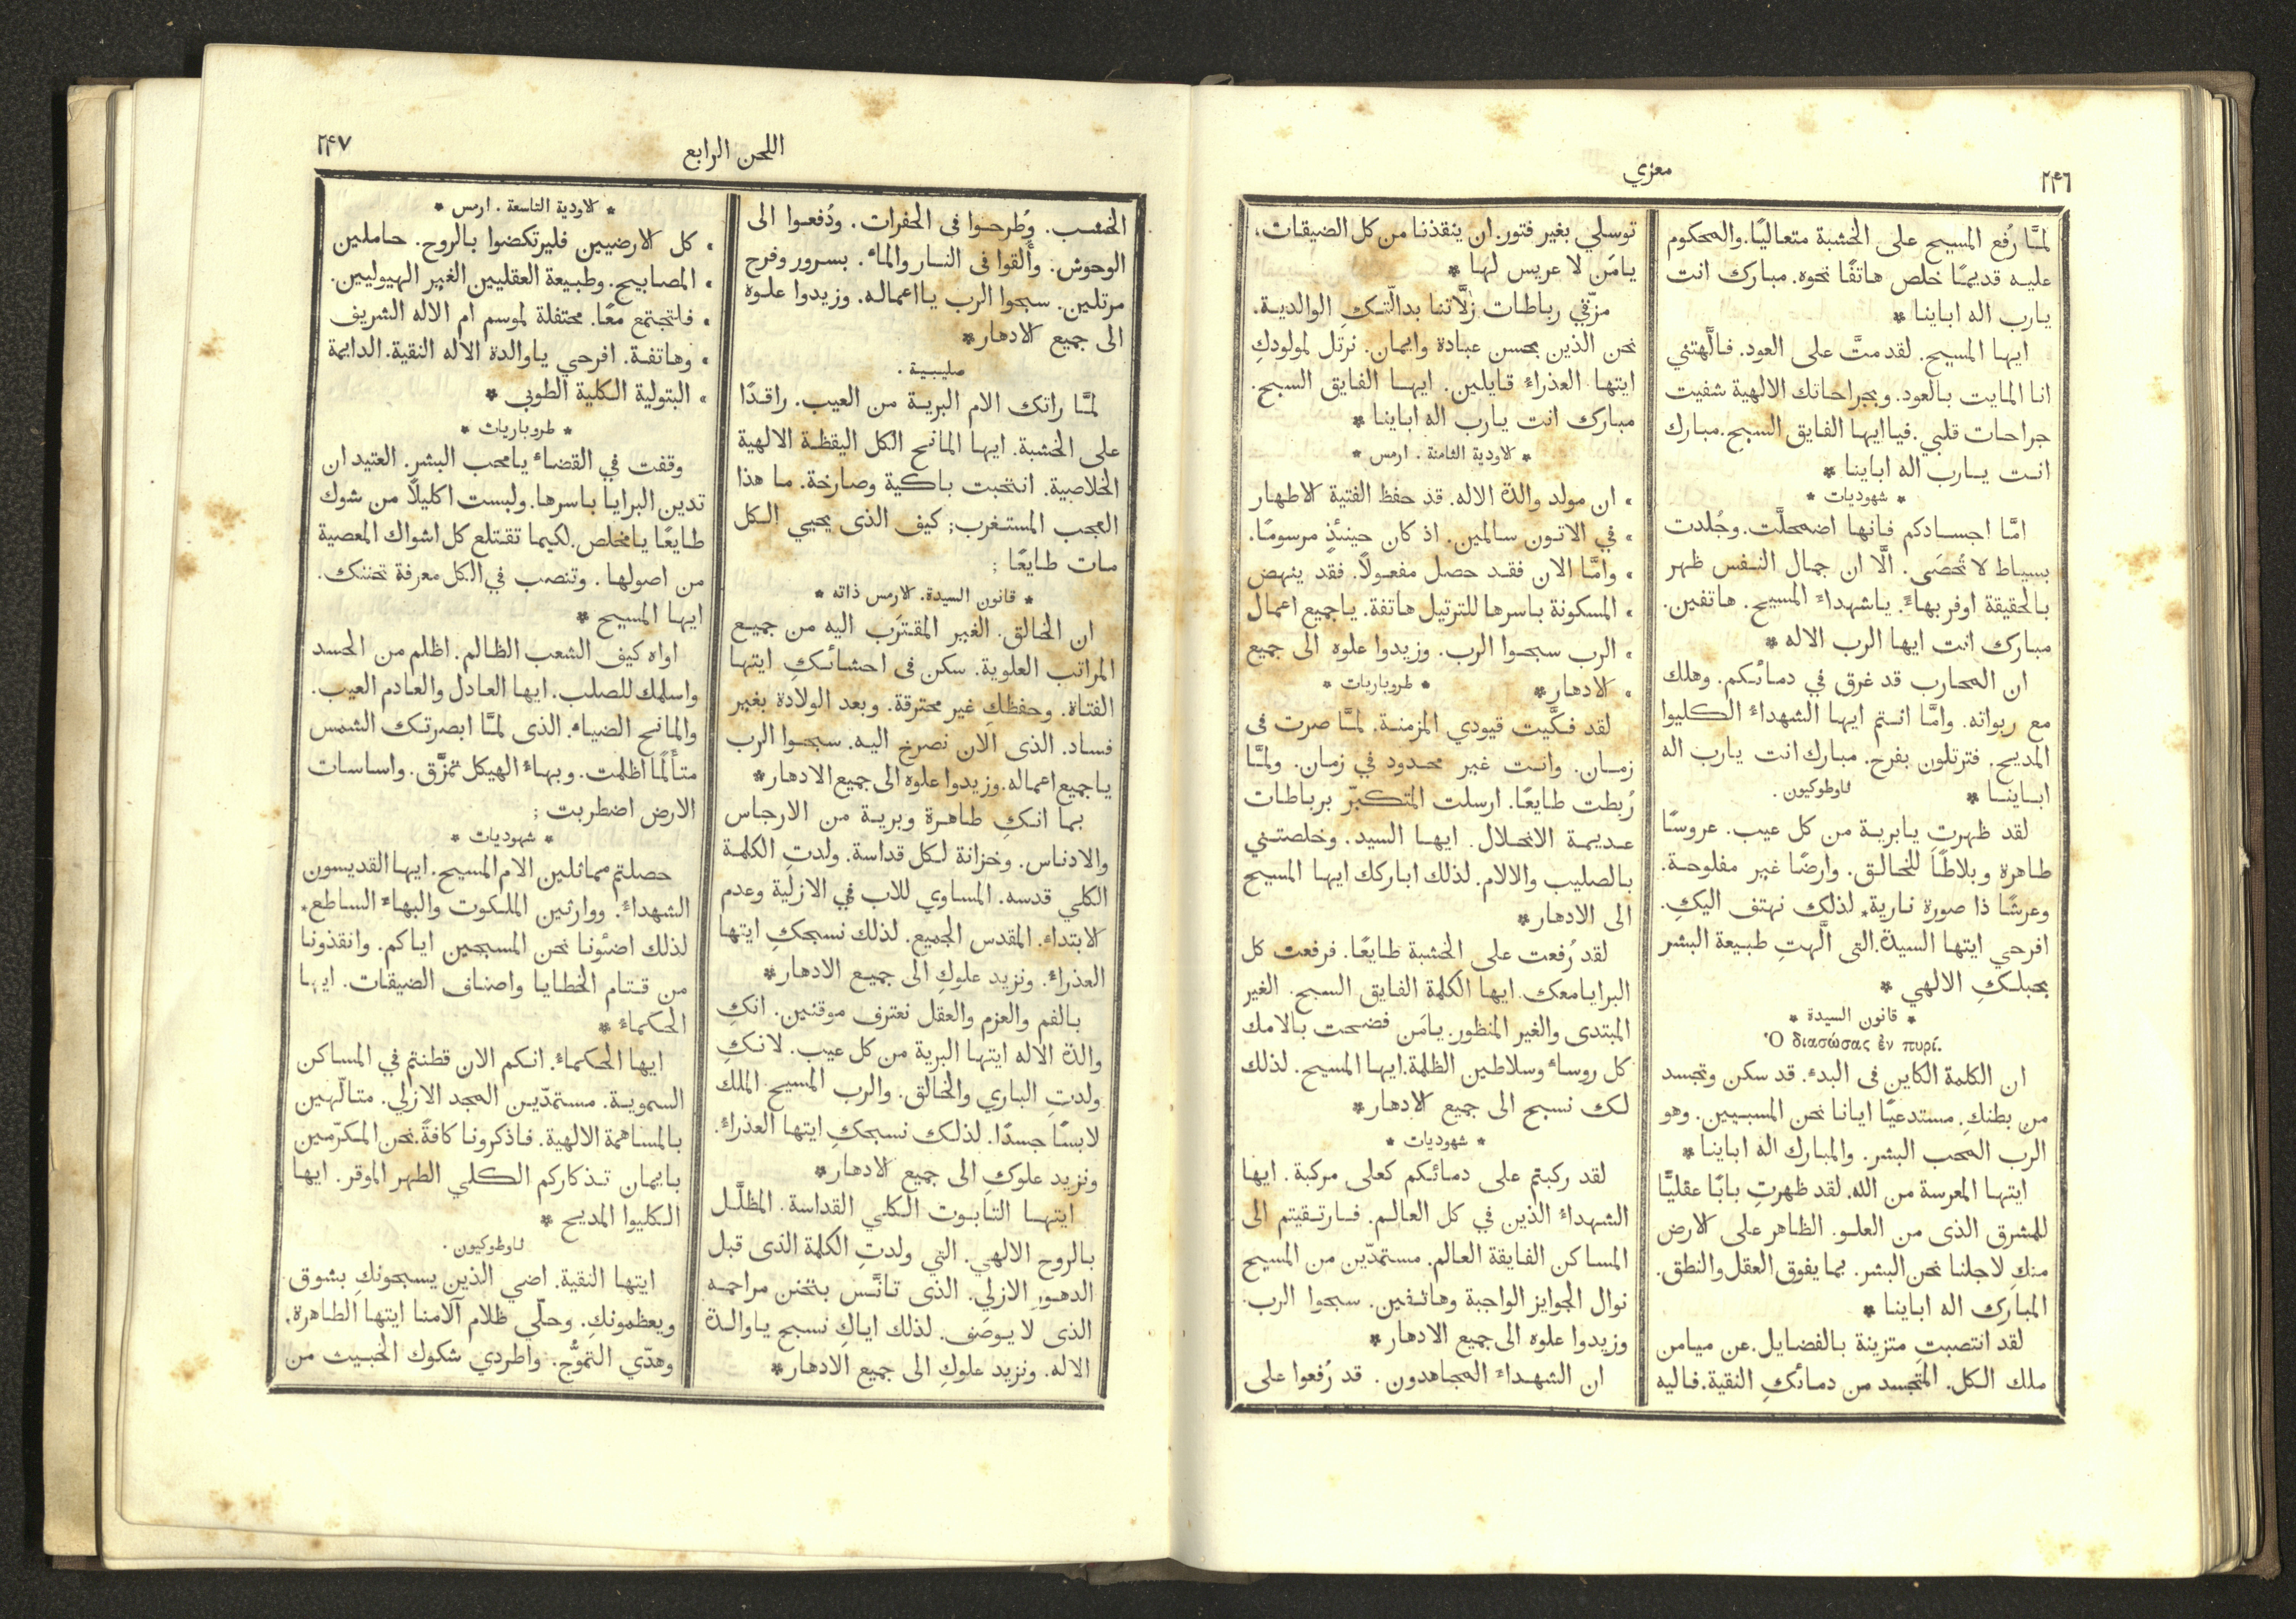 ٢٤٦
معزي
لمَّا رُفع المسيح على الخشبة متعاليًا. والمحكوم
عليه قديمًا خلص هاتفًا نحوه. مبارك انت
يارب اله اباينا *
ايها المسيح. لقد متَّ على العود. فالَّهتني
انا المايت بالعود. وبجراحاتك الالهية شفيت
جراحات قلبي. فياايها الفايق السبح. مبارك
انت يارب اله اباينا *
* شهوديات *
امَّا اجسادكم فانها اضمحلَّت. وجُلدت
بسياط لا تُحصَى. الَّا ان جمال النفس ظهر
بالحقيقة اوفر بهاءً. ياشهداء المسيح. هاتفين.
مبارك انت ايها الرب الاله *
ان المحارب قد غرق في دمائكم. وهلك
مع ربواته. وامَّا انتم ايها الشهداء الكليوا
المديح. فترتلون بفرح. مبارك انت يارب اله
اباينا * ثاوطوكيون.
لقد ظهرتِ يابرية من كل عيب. عروسًا
طاهرة وبلاطًا للخالق. وارضًا غير مفلوحة.
وعرشًا ذا صورة نارية* لذلك نهتف اليكِ.
افرحي ايتها السيدة. التى الَّهتِ طبيعة البشر
بحبلكِ الالهي *
* قانون السيدة *
Ὁ διασώσας ἐν πυρί.
ان الكلمة الكاين فى البدء. قد سكن وتجسد
من بطنكِ. مستدعيًا ايانا نحن المسبيين. وهو
الرب المحب البشر. والمبارك اله اباينا *
ايتها المعرسة من الله. لقد ظهرتِ بابًا عقليًّا
للمشرق الذى من العلو. الظاهر على الارض
منكِ لاجلنا نحن البشر. بما يفوق العقل والنطق.
المبارك اله اباينا *
لقد انتصبتِ متزينة بالفضايل. عن ميامن
ملك الكل. المتجسد من دمائكِ النقية. فاليه
توسلي بغير فتور. ان ينقذنا من كل الضيقات.
يامَن لا عريس لها *
مزّقي رباطات زلَّاتنا بدالّتكِ الوالدية.
نحن الذين بحسن عبادة وايمان. نرتل لمولودكِ
ايتها العذراء قايلين. ايها الفايق السبح.
مبارك انت يارب اله اباينا *
* الاودية الثامنة. ارمس *
» ان مولد والدة الاله. قد حفظ الفتية الاطهار
» في الاتون سالمين. اذ كان حينئذٍ مرسومًا.
» وامَّا الان فقد حصل مفعولًا. فقد ينهض
» المسكونة باسرها للترتيل هاتفة. ياجميع اعمال
» الرب سبحوا الرب. وزيدوا علوه الى جميع
» الادهار * * طروباريات *
لقد فكَّيت قيودي المزمنة. لمَّا صرت فى
زمان. وانت غير محدود في زمان. ولمَّا
رُبطت طايعًا. ارسلت المتكبرّ برباطات
عديمة الانحلال. ايها السيد. وخلصتني
بالصليب والالام. لذلك اباركك ايها المسيح
الى الادهار *
لقد رُفعت على الخشبة طايعًا. فرفعت كل
البرايا معك. ايها الكلمة الفايق السبح. الغير
المبتدى والغير المنظور. يامَن فضحت بالامك
كل روساء وسلاطين الظلمة. ايها المسيح. لذلك
لك نسبح الى جميع الادهار *
* شهوديات *
لقد ركبتم على دمائكم كعلى مركبة. ايها
الشهداء الذين في كل العالم. فارتقيتم الى
المساكن الفايقة العالم. مستمدّين من المسيح
نوال الجوايز الواجبة وهاتفين. سبحوا الرب.
وزيدوا علوه الى جميع الادهار *
ان الشهداء المجاهدون. قد رُفعوا على
٢٤٧
اللحن الرابع
الخشب. وطُرحوا فى الحفرات. ودُفعوا الى
الوحوش. وأُلقوا فى النار والماء. بسرور وفرح
مرتلين. سبحوا الرب يااعماله. وزيدوا علوه
الى جميع الادهار *
صليبية.
لمَّا راتك الام البرية من العيب. راقدًا
على الخشبة. ايها المانح الكل اليقظة الالهية
الخلاصية. انتحبت باكية وصارخة. ما هذا
العجب المستغرب؛ كيف الذى يحيي الكل
مات طايعًا؛
* قانون السيدة. الارمس ذاته *
ان الخالق. الغير المقترَب اليه من جميع
المراتب العلوية. سكن فى احشائكِ ايتها
الفتاة. وحفظكِ غير محترقة. وبعد الولادة بغير
فساد. الذى الان نصرخ اليه. سبحوا الرب
ياجميع اعماله. وزيدوا علوه الى جميع الادهار *
بما انكِ طاهرة وبرية من الارجاس
والادناس. وخزانة لكل قداسة. ولدتِ الكلمة
الكلي قدسه. المساوي للاب في الازلية وعدم
الابتداء. المقدس الجميع. لذلك نسبحكِ ايتها
العذراء. ونزيد علوكِ الى جميع الادهار *
بالفم والعزم والعقل نعترف موقنين. انكِ
والدة الاله ايتها البرية من كل عيب. لانكِ
ولدتِ الباري والخالق. والرب المسيح الملك
لابسًا جسدًا. لذلك نسبحكِ ايتها العذراء.
ونزيد علوكِ الى جميع الادهار *
ايتها التابوت الكلي القداسة. المظلَّل
بالروح الالهي. التي ولدتِ الكلمة الذى قبل
الدهور الازلي. الذى تانَّس بتحنن مراحمه
الذى لا يوصَف. لذلك اياكِ نسبح ياوالدة
الاله. ونزيد علوكِ الى جميع الادهار *
* الاودية التاسعة. ارمس *
» كل الارضيين فليرتكضوا بالروح. حاملين
» المصابيح. وطبيعة العقليين الغير الهيوليين.
» فلتجتمع معًا. محتفلة لموسم ام الاله الشريف
» وهاتفة. افرحي ياوالدة الاله النقية. الدايمة
» البتولية الكلية الطوبى *
* طروباريات *
وقفت في القضاء يامحب البشر. العتيد ان
تدين البرايا باسرها. ولبست اكليلًا من شوك
طايعًا يامخلص. لكيما تقتلع كل اشواك المعصية
من اصولها. وتنصب في الكل معرفة تحننك.
ايها المسيح *
اواه كيف الشعب الظالم. اظلم من الحسد
واسلمك للصلب. ايها العادل والعادم العيب.
والمانح الضياء. الذى لمَّا ابصرتك الشمس
متألمًا اظلمت. وبهاء الهيكل تمزَّق. واساسات
الارض اضطربت؛
* شهوديات *
حصلتم مماثلين الام المسيح. ايها القديسون
الشهداء. ووارثين الملكوت والبهاء الساطع*
لذلك اضئونا نحن المسبحين اياكم. وانقذونا
من قتام الخطايا واصناف الضيقات. ايها
الحكماء *
ايها الحكماء. انكم الان قطنتم في المساكن
السموية. مستمدّين المجد الازلي. متالّهين
بالمساهمة الالهية. فاذكرونا كافةً. نحن المكرّمين
بايمان تذكاركم الكلي الطهر الموقر. ايها
الكليوا المديح *
ثاوطوكيون.
ايتها النقية. اضي الذين يسبحونكِ بشوق
ويعظمونكِ. وحلّي ظلام آلامنا ايتها الطاهرة.
وهدّي التموُّج. واطردي شكوك الخبيث من